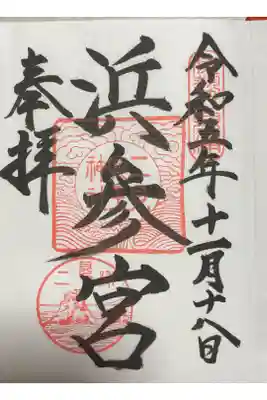 令和五年十一月十八日
浜參宮
奉拝